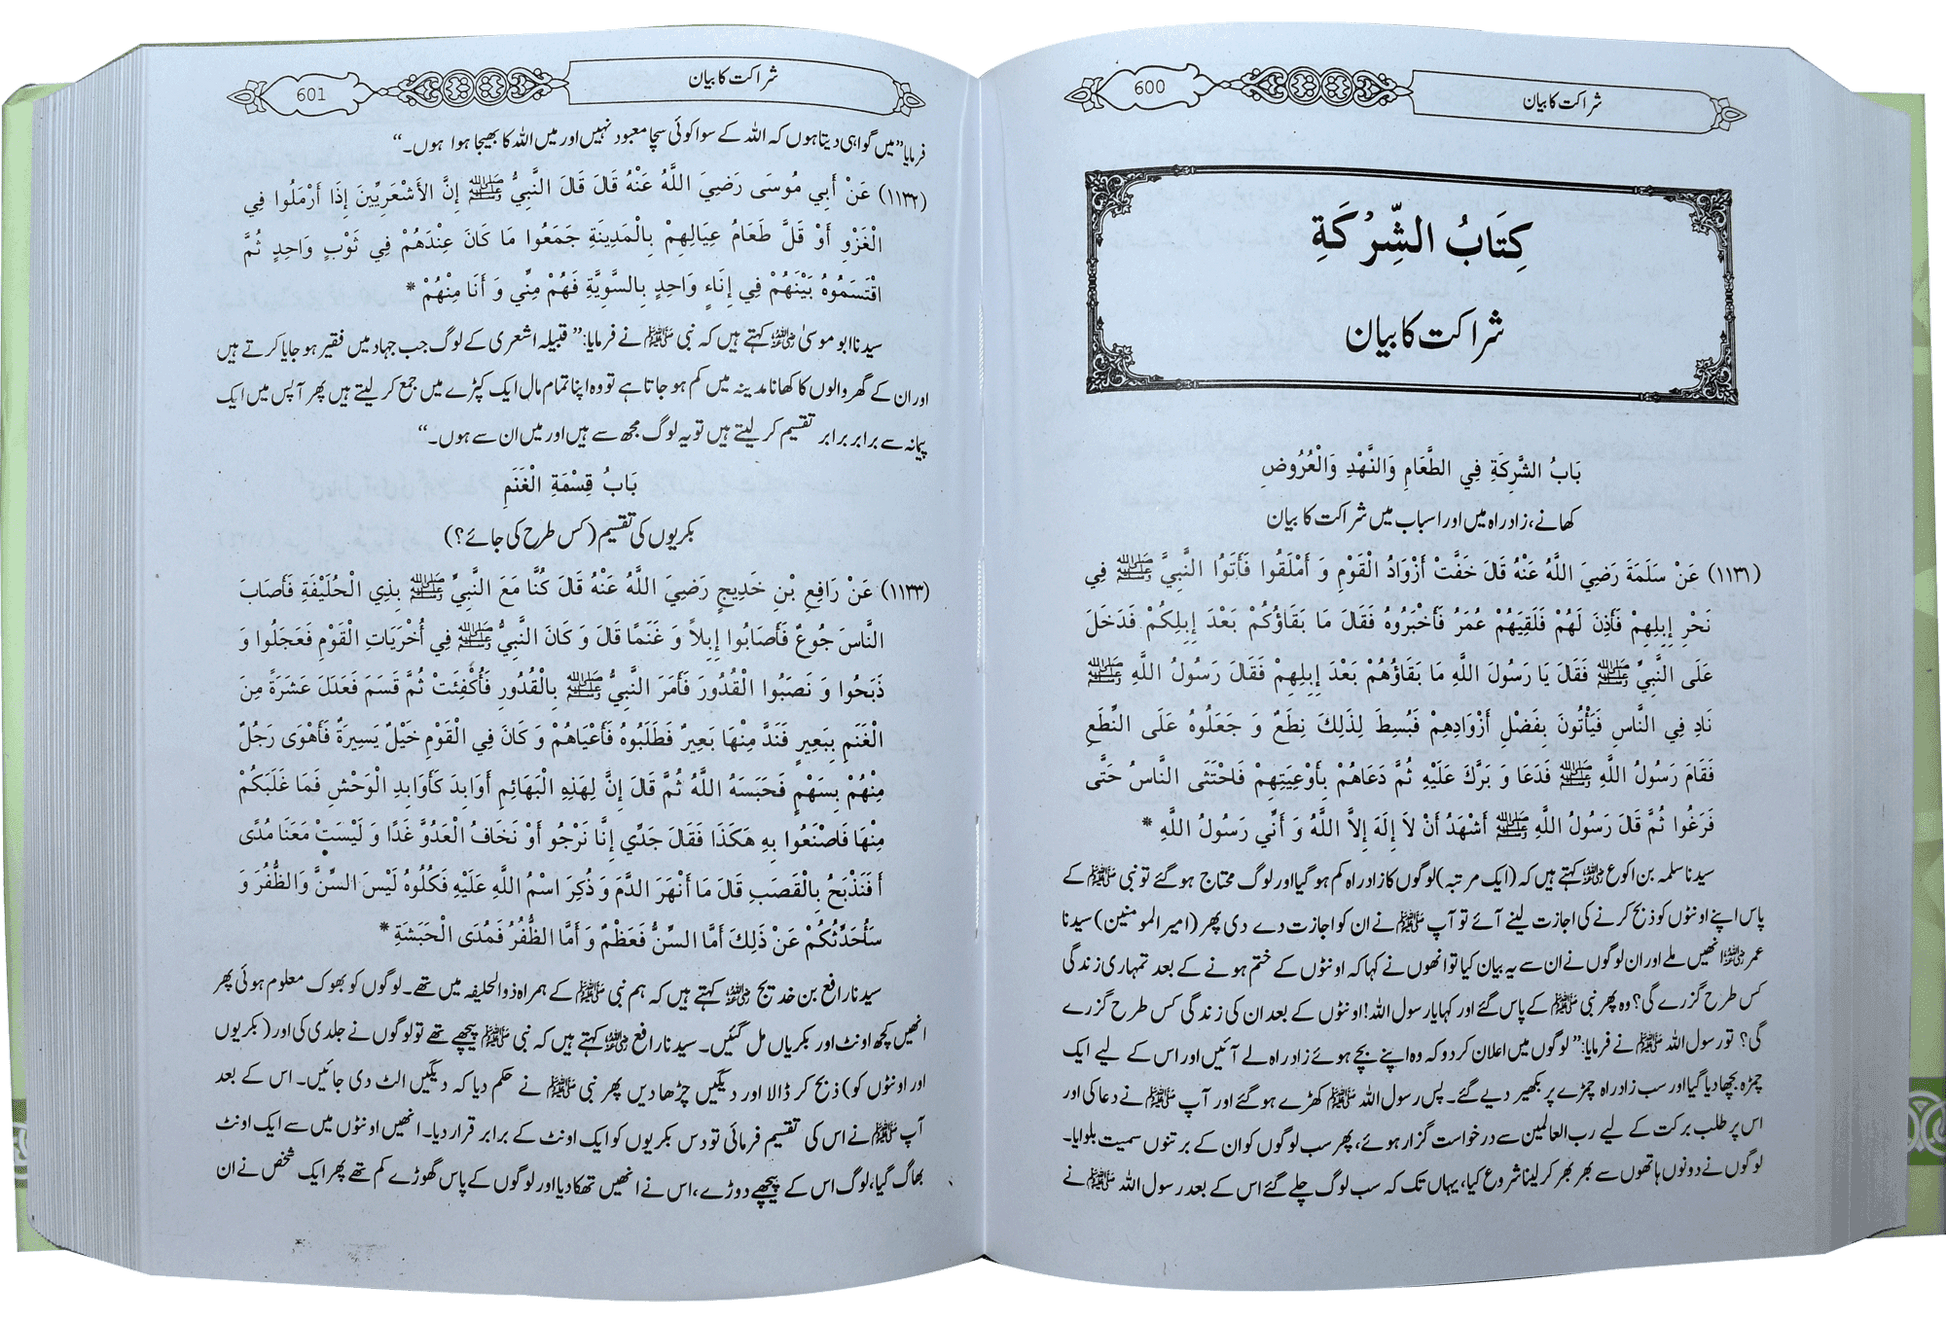 600
شراکت کا بیان
كِتَابُ الشِّرْكَةِ
شراکت کا بیان
بَابُ الشَّرِكَةِ فِي الطَّعَامِ وَالنَّهْدِ وَالْعُرُوضِ
کھانے، زاد راہ میں اور اسباب میں شراکت کا بیان
(۱۱۳۱) عَنْ سَلَمَةَ رَضِيَ اللَّهُ عَنْهُ قَالَ خَفَّتْ أَزْوَادُ الْقَوْمِ وَ أَمْلَقُوا فَأَتَوُا النَّبِيَّ ﷺ فِي
نَحْرِ إِبِلِهِمْ فَأَذِنَ لَهُمْ فَلَقِيَهُمْ عُمَرُ فَأَخْبَرُوهُ فَقَالَ مَا بَقَاؤُكُمْ بَعْدَ إِبِلِكُمْ فَدَخَلَ
عَلَى النَّبِيِّ ﷺ فَقَالَ يَا رَسُولَ اللَّهِ مَا بَقَاؤُهُمْ بَعْدَ إِبِلِهِمْ فَقَالَ رَسُولُ اللَّهِ ﷺ
نَادِ فِي النَّاسِ فَيَأْتُونَ بِفَضْلِ أَزْوَادِهِمْ فَبُسِطَ لِذَلِكَ نِطَعٌ وَ جَعَلُوهُ عَلَى النِّطَعِ
فَقَامَ رَسُولُ اللَّهِ ﷺ فَدَعَا وَ بَرَّكَ عَلَيْهِ ثُمَّ دَعَاهُمْ بِأَوْعِيَتِهِمْ فَاحْتَثَى النَّاسُ حَتَّى
فَرَغُوا ثُمَّ قَالَ رَسُولُ اللَّهِ ﷺ أَشْهَدُ أَنْ لاَ إِلَهَ إِلاَّ اللَّهُ وَ أَنِّي رَسُولُ اللَّهِ *
سیدنا سلمہ بن اکوع رضی اللہ عنہ کہتے ہیں کہ (ایک مرتبہ) لوگوں کا زاد راہ کم ہو گیا اور لوگ محتاج ہو گئے تو نبی ﷺ کے
پاس اپنے اونٹوں کو ذبح کرنے کی اجازت لینے آئے تو آپ ﷺ نے ان کو اجازت دے دی پھر (امیر المومنین) سیدنا
عمر رضی اللہ عنہ انھیں ملے اور ان لوگوں نے ان سے یہ بیان کیا تو انھوں نے کہا کہ اونٹوں کے ختم ہونے کے بعد تمہاری زندگی
کس طرح گزرے گی؟ وہ پھر نبی ﷺ کے پاس گئے اور کہا یا رسول اللہ! اونٹوں کے بعد ان کی زندگی کس طرح گزرے
گی؟ تو رسول اللہ ﷺ نے فرمایا: ”لوگوں میں اعلان کر دو کہ وہ اپنے بچے ہوئے زاد راہ لے آئیں اور اس کے لیے ایک
چمڑہ بچھا دیا گیا اور سب زاد راہ چمڑے پر بکھیر دیے گئے۔ پس رسول اللہ ﷺ کھڑے ہو گئے اور آپ ﷺ نے دعا کی اور
اس پر طلب برکت کے لیے رب العالمین سے درخواست گزار ہوئے، پھر سب لوگوں کو ان کے برتنوں سمیت بلوایا۔
لوگوں نے دونوں ہاتھوں سے بھر بھر کر لینا شروع کیا، یہاں تک کہ سب لوگ چلے گئے اس کے بعد رسول اللہ ﷺ نے
601
شراکت کا بیان
فرمایا ”میں گواہی دیتا ہوں کہ اللہ کے سوا کوئی سچا معبود نہیں اور میں اللہ کا بھیجا ہوا ہوں۔“
(۱۱۳۲) عَنْ أَبِي مُوسَى رَضِيَ اللَّهُ عَنْهُ قَالَ قَالَ النَّبِيُّ ﷺ إِنَّ الأَشْعَرِيِّينَ إِذَا أَرْمَلُوا فِي
الْغَزْوِ أَوْ قَلَّ طَعَامُ عِيَالِهِمْ بِالْمَدِينَةِ جَمَعُوا مَا كَانَ عِنْدَهُمْ فِي ثَوْبٍ وَاحِدٍ ثُمَّ
اقْتَسَمُوهُ بَيْنَهُمْ فِي إِنَاءٍ وَاحِدٍ بِالسَّوِيَّةِ فَهُمْ مِنِّي وَ أَنَا مِنْهُمْ *
سیدنا ابو موسیٰ رضی اللہ عنہ کہتے ہیں کہ نبی ﷺ نے فرمایا: ”قبیلہ اشعری کے لوگ جب جہاد میں فقیر ہو جایا کرتے ہیں
اور ان کے گھر والوں کا کھانا مدینہ میں کم ہو جاتا ہے تو وہ اپنا تمام مال ایک کپڑے میں جمع کر لیتے ہیں پھر آپس میں ایک
پیمانہ سے برابر برابر تقسیم کر لیتے ہیں تو یہ لوگ مجھ سے ہیں اور میں ان سے ہوں۔“
بَابُ قِسْمَةِ الْغَنَمِ
بکریوں کی تقسیم (کس طرح کی جائے؟)
(۱۱۳۳) عَنْ رَافِعِ بْنِ خَدِيجٍ رَضِيَ اللَّهُ عَنْهُ قَالَ كُنَّا مَعَ النَّبِيِّ ﷺ بِذِي الْحُلَيْفَةِ فَأَصَابَ
النَّاسَ جُوعٌ فَأَصَابُوا إِبِلاً وَ غَنَمًا قَالَ وَ كَانَ النَّبِيُّ ﷺ فِي أُخْرَيَاتِ الْقَوْمِ فَعَجَلُوا وَ
ذَبَحُوا وَ نَصَبُوا الْقُدُورَ فَأَمَرَ النَّبِيُّ ﷺ بِالْقُدُورِ فَأُكْفِئَتْ ثُمَّ قَسَمَ فَعَدَلَ عَشَرَةً مِنَ
الْغَنَمِ بِبَعِيرٍ فَنَدَّ مِنْهَا بَعِيرٌ فَطَلَبُوهُ فَأَعْيَاهُمْ وَ كَانَ فِي الْقَوْمِ خَيْلٌ يَسِيرَةٌ فَأَهْوَى رَجُلٌ
مِنْهُمْ بِسَهْمٍ فَحَبَسَهُ اللَّهُ ثُمَّ قَالَ إِنَّ لِهَذِهِ الْبَهَائِمِ أَوَابِدَ كَأَوَابِدِ الْوَحْشِ فَمَا غَلَبَكُمْ
مِنْهَا فَاصْنَعُوا بِهِ هَكَذَا فَقَالَ جَدِّي إِنَّا نَرْجُو أَوْ نَخَافُ الْعَدُوَّ غَدًا وَ لَيْسَتْ مَعَنَا مُدًى
أَفَنَذْبَحُ بِالْقَصَبِ قَالَ مَا أَنْهَرَ الدَّمَ وَ ذُكِرَ اسْمُ اللَّهِ عَلَيْهِ فَكُلُوهُ لَيْسَ السِّنَّ وَالظُّفُرَ وَ
سَأُحَدِّثُكُمْ عَنْ ذَلِكَ أَمَّا السِّنُّ فَعَظْمٌ وَ أَمَّا الظُّفُرُ فَمُدَى الْحَبَشَةِ *
سیدنا رافع بن خدیج رضی اللہ عنہ کہتے ہیں کہ ہم نبی ﷺ کے ہمراہ ذوالحلیفہ میں تھے۔ لوگوں کو بھوک معلوم ہوئی پھر
انھیں کچھ اونٹ اور بکریاں مل گئیں۔ سیدنا رافع رضی اللہ عنہ کہتے ہیں کہ نبی ﷺ پیچھے تھے تو لوگوں نے جلدی کی اور (بکریوں
اور اونٹوں کو) ذبح کر ڈالا اور دیگیں چڑھا دیں پھر نبی ﷺ نے حکم دیا کہ دیگیں الٹ دی جائیں۔ اس کے بعد
آپ ﷺ نے اس کی تقسیم فرمائی تو دس بکریوں کو ایک اونٹ کے برابر قرار دیا۔ انھیں اونٹوں میں سے ایک اونٹ
بھاگ گیا، لوگ اس کے پیچھے دوڑے، اس نے انھیں تھکا دیا اور لوگوں کے پاس گھوڑے کم تھے پھر ایک شخص نے ان